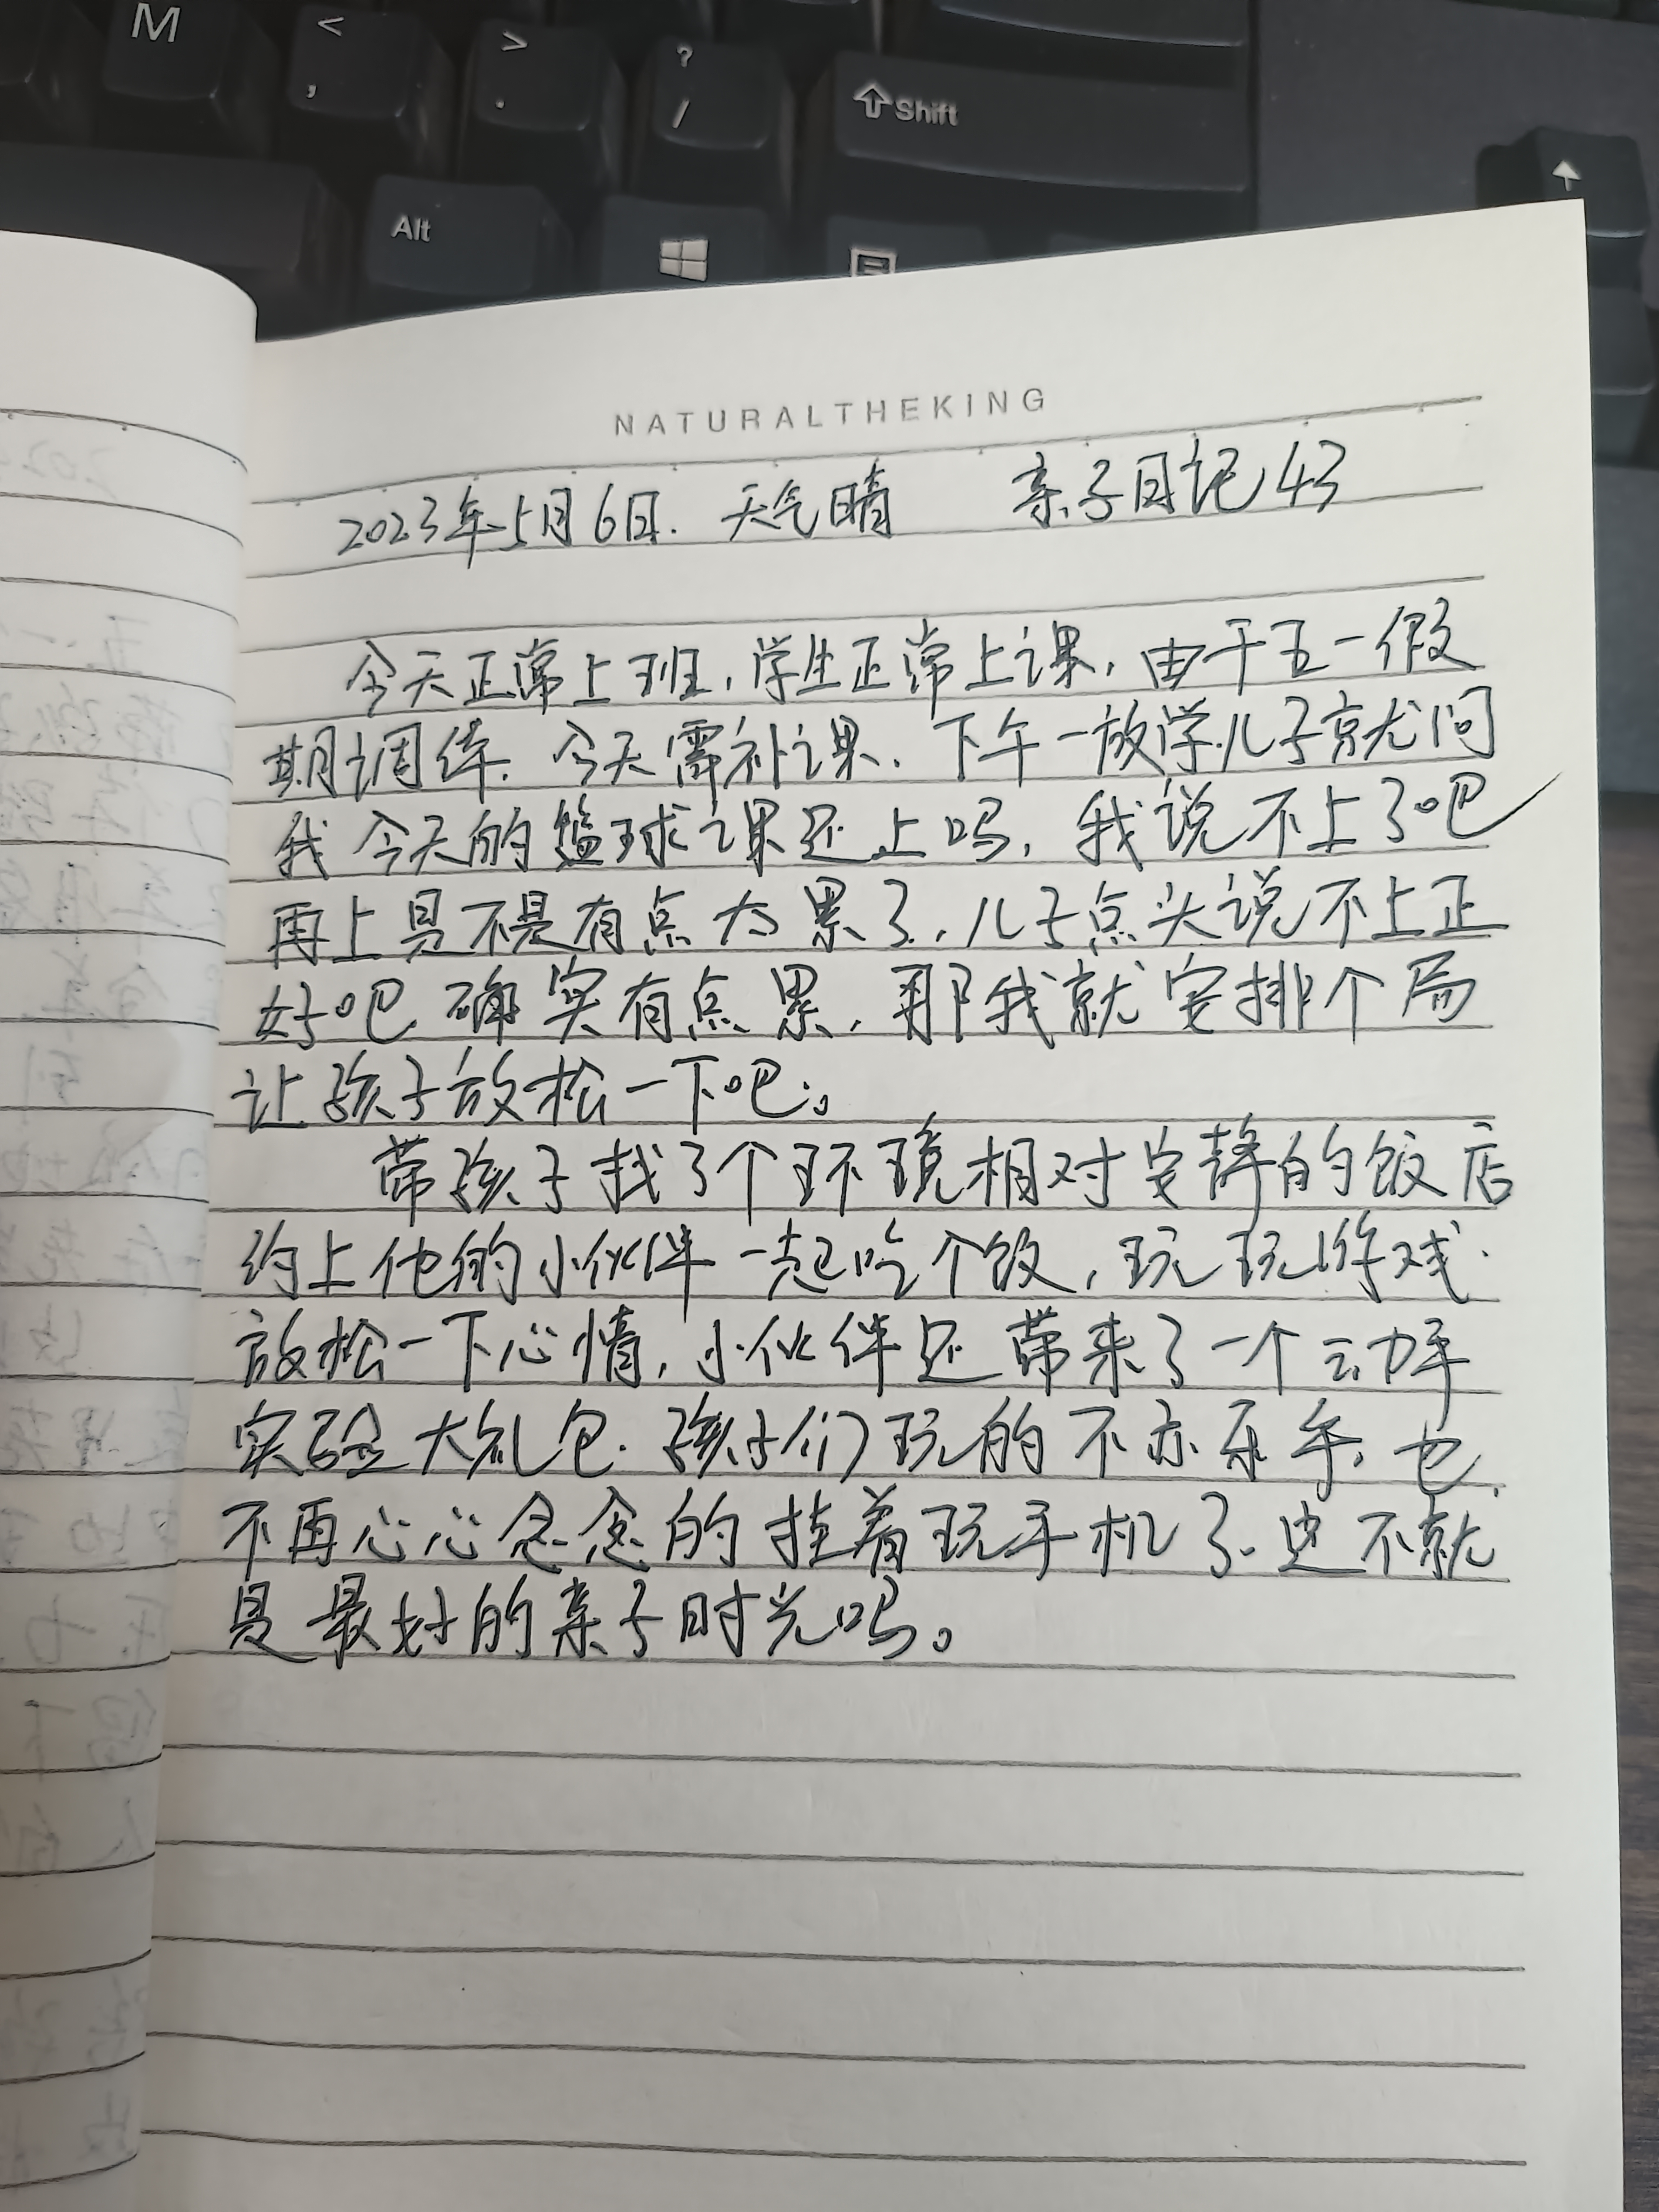 M
<
,
>
.
?
/
Shift
Alt
NATURALTHEKING
2023年5月6日. 天气晴 亲子日记43
今天正常上班,学生正常上课,由于五一假
期调休.今天需补课、下午一放学儿子就问
我今天的篮球课还上吗,我说不上了吧
再上是不是有点太累了,儿子点头说不上正
好吧.确实有点累,那我就安排个局
让孩子放松一下吧。
带孩子找了个环境相对安静的饭店
约上他的小伙伴一起吃个饭,玩玩游戏.
放松一下心情,小伙伴还带来了一个动手
实验大礼包.孩子们玩的不亦乐乎,也
不再心心念念的挂着玩手机了.这不就
是最好的亲子时光吗。